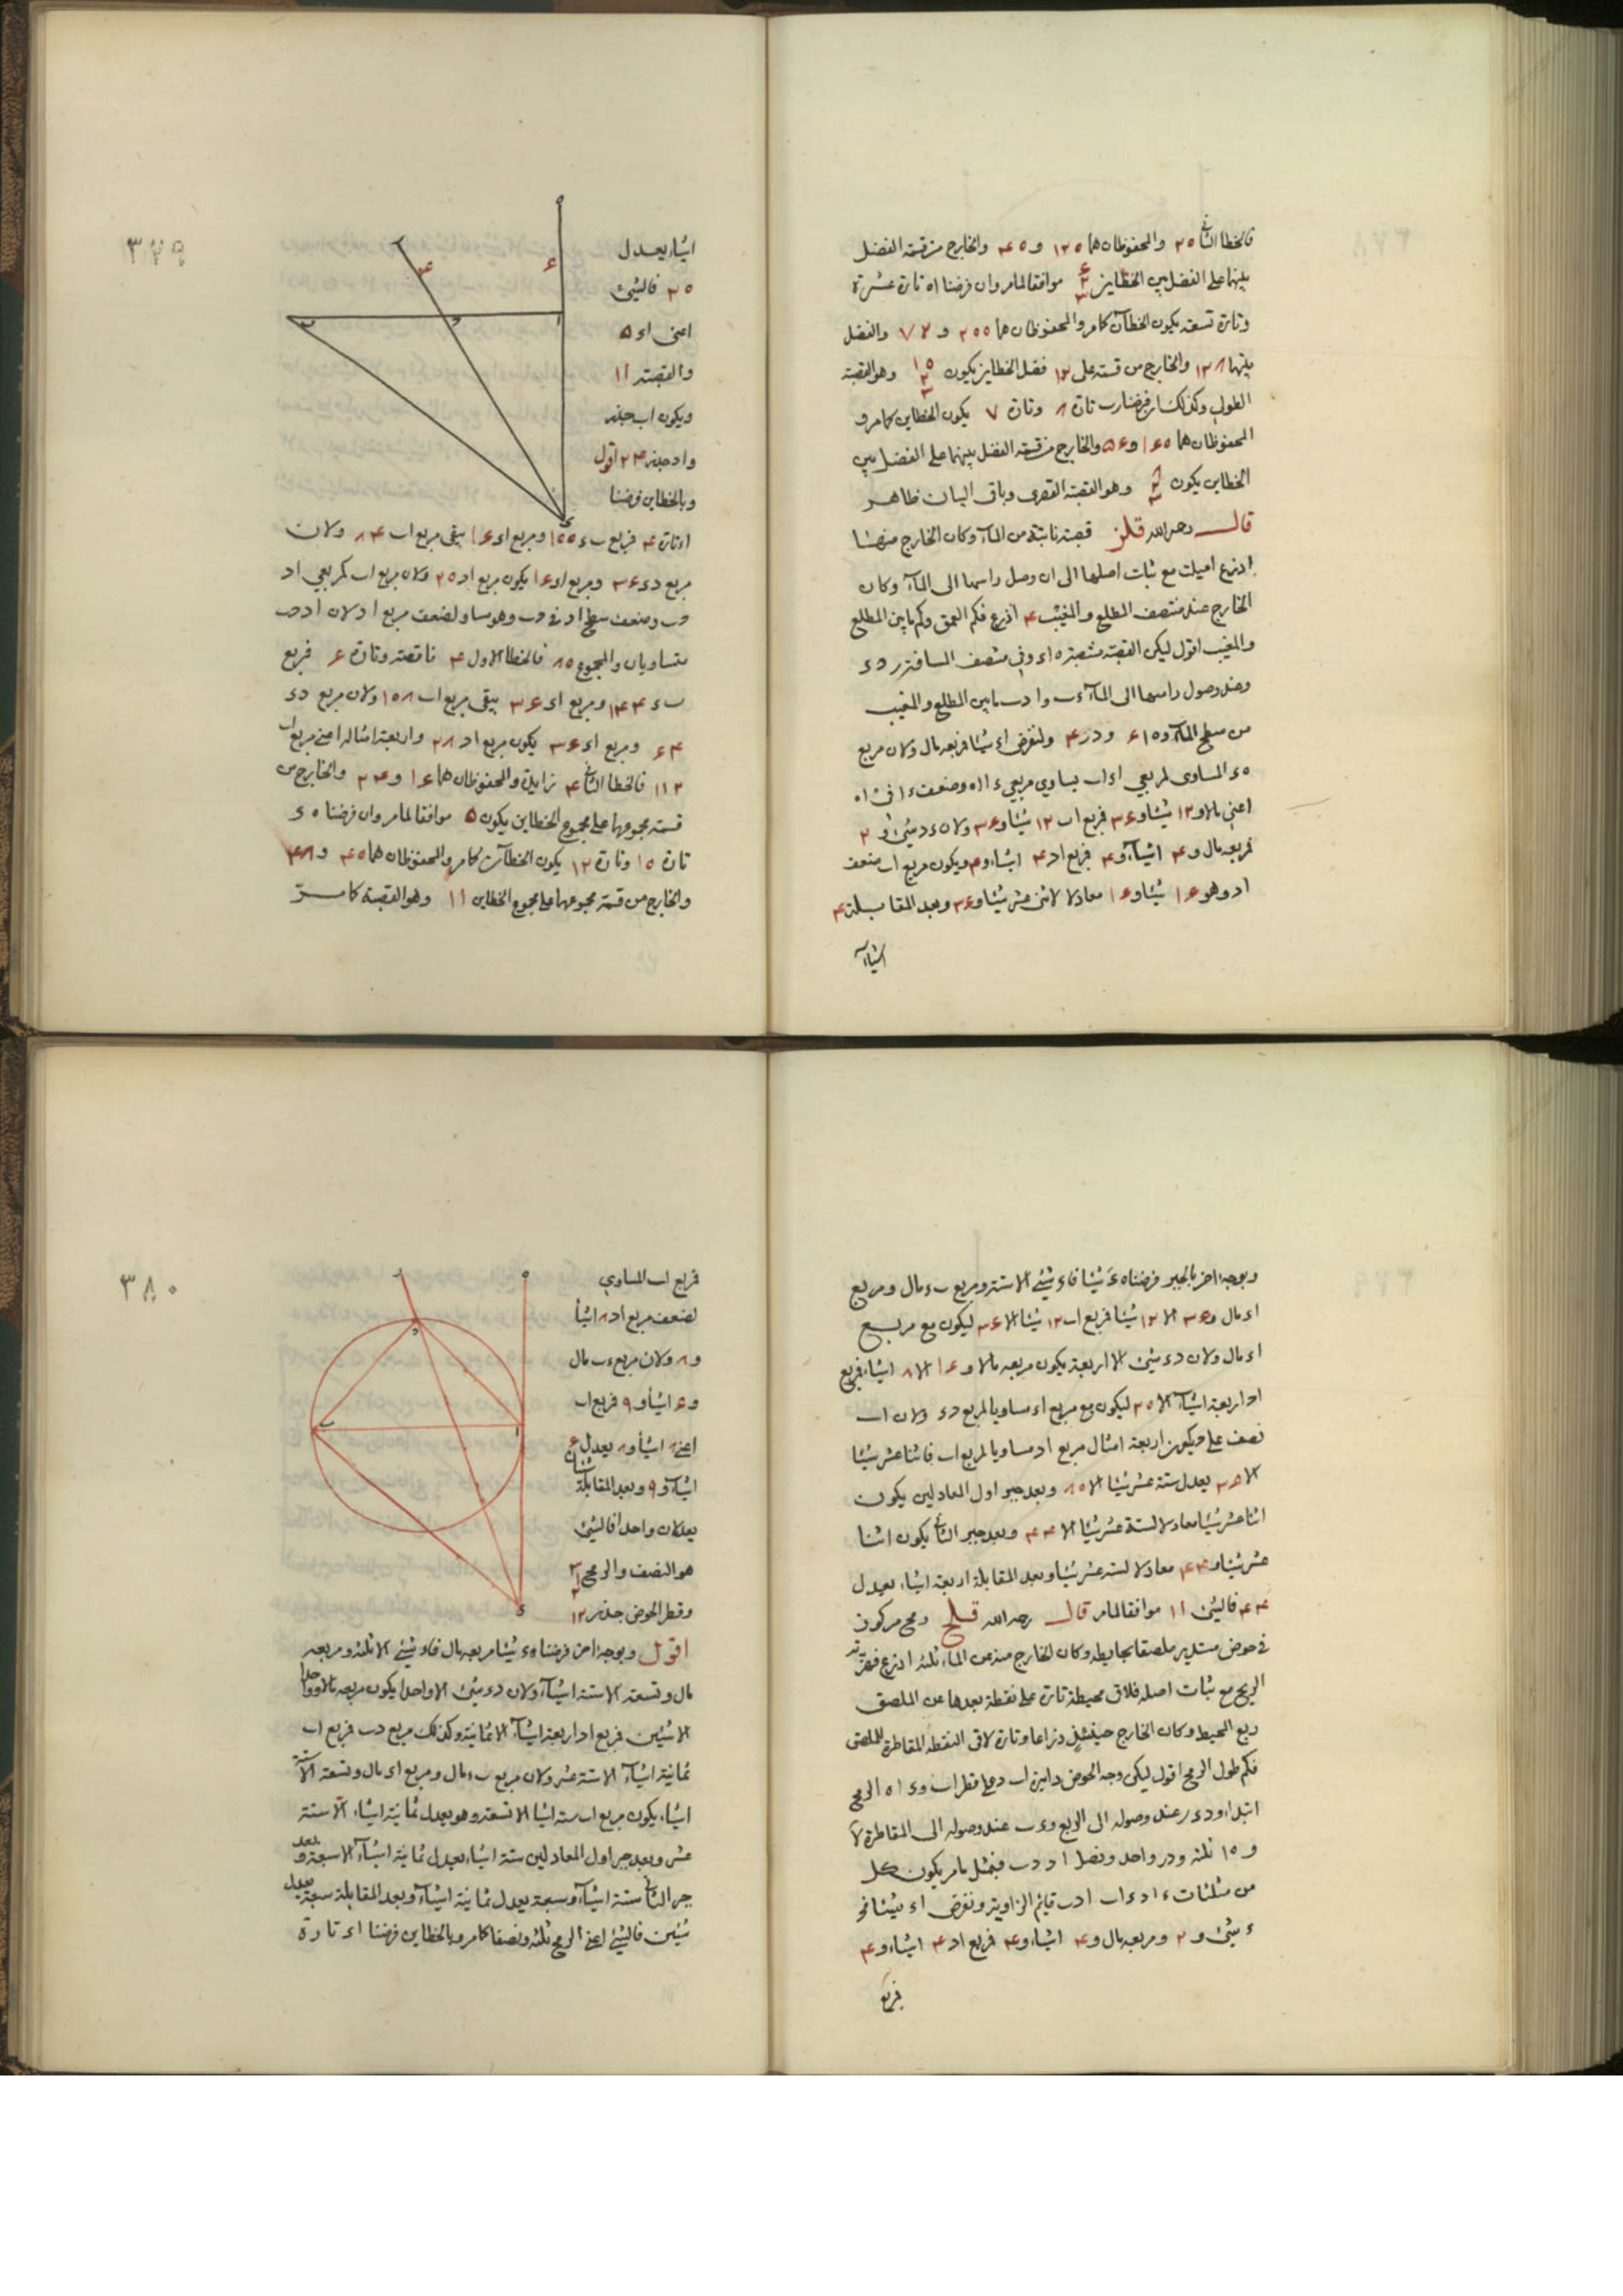 فالخطا الثانى ٢٥ والمحفوظان هما ١٢٥ و ٤٥ والخارج من قسمة الفضل
بينهما على الفضل بين الخطاين موافقا لما مر وان فرضنا اه تارة عشرة
وتارة تسعة يكون الخطآن كما مر والمحفوظان هما ٢٥٥ و ٧٢ والفضل
بينهما ١٣٨ والخارج من قسمته على ١٢ فضل الخطاين يكون وهو القصبة
الطولى وكذلك ان فرضنا رب تارة ٨ وتارة ٧ يكون الخطاين كما مر و
المحفوظان هما ١٤٥ و ٥٤ والخارج من قسمة الفضل بينهما على الفضل بين
الخطاين يكون وهو القصبة القصرى وباقى البيان ظاهر
قال رحمه الله قلز قصبة نابتة من المآء وكان الخارج منها
اذرع اميلت مع ثبات اصلها الى ان وصل راسها الى المآء وكان
الخارج عند منتصف المطلع والمغيب ٤ اذرع فكم العمق وكم ما بين المطلع
والمغيب اقول ليكن القصبة منتصبة ه اء وفى منتصف المسافة ر د ء
وعند وصول راسها الى المآء ء ب و ا د ب ما بين المطلع والمغيب
من سطح المآء و ه ا ٦ و د ر ٤ ولنفرض اء شيئا فمربعه مال ولان مربع
ه ء المساوى لمربعى اء اب يساوى مربعى ء ا اه وضعف ء ا فى اه
اعنى مالا و ١٢ شيئا و ٣٦ فمربع اب ١٢ شيئا و ٣٦ ولان ء د شئ و ٢
فمربعه مال و ٤ اشيآء و ٤ فمربع اد ٤ اشياء و ٤ ويكون مربع اب ضعف
اد وهو ١٦ شيئا و ١٦ معادلا لاثنى عشر شيئا و ٣٦ وبعد المقابلة ٤
اشياء
٣٧٩
اشياء يعدل
٢٥ فالشئ
اعنى اء ٥
والقصبة ١١
ويكون اب جذر
واد جذر ٢٤ اقول
وبالخطاين فرضنا
اء تارة ٤ فمربع ب ء ١٥٥ ومربع اء ١٦ يبقى مربع اب ٨٤ ولان
مربع د ء ٣٦ ومربع اء ١٦ يكون مربع اد ٢٥ ولان مربع اب كمربعى اد
د ب وضعف سطح اد فى د ب وهو مساو لضعف مربع اد لان اد د ب
متساويان والمجموع ٨٥ فالخطا الاول ٤ ناقصة وتارة ٦ فمربع
ب ء ١٤٤ ومربع اء ٣٦ يبقى مربع اب ١٥٨ ولان مربع د ء
٦٤ ومربع اء ٣٦ يكون مربع اد ٢٨ واربعة امثاله اعنى مربع اب
١١٢ فالخطا الثانى ٤ زايدة والمحفوظان هما ١٦ و ٢٤ والخارج من
قسمة مجموعهما على مجموع الخطاين يكون ٥ موافقا لما مر وان فرضنا ه ء
تارة ١٥ وتارة ١٢ يكون الخطآن كما مر والمحفوظان هما ٤٥ و ٤٨
والخارج من قسمة مجموعهما على مجموع الخطاين ١١ وهو القصبة كما مر
وبوجه اخر بالجبر فرضنا ه ء شيئا فاء شئ الا ستة ومربع ب ء مال ومربع
اء مال و ٣٦ الا ١٢ شيئا فمربع اب ١٢ شيئا الا ٣٦ ليكون مع مربع
اء مال ولان د ء شئ الا اربعة يكون مربعه مالا و ١٦ الا ٨ اشياء فمربع
اد اربعة اشيآء الا ٢٥ ليكون مع مربع اء مساويا لمربع د ء ولان اب
نصف على د يكون اربعة امثال مربع اد مساويا لمربع اب فاثنا عشر شيئا
الا ٣٦ يعدل ستة عشر شيئا الا ٨٥ وبعد جبر اول المعادلين يكون
اثنا عشر شيئا معادلا لستة عشر شيئا الا ٤٤ وبعد جبر الثانى يكون اثنا
عشر شيئا و ٤٤ معادلا لستة عشر شيئا وبعد المقابلة اربعة اشياء يعدل
٤٤ فالشئ ١١ موافقا لما مر قال رحمه الله قلح رمح مركوز
فى حوض مستدير ملصقا بحايطه وكان الخارج منه عن الماء ثلثة اذرع فحرك
الريح مع ثبات اصله فلاقى محيطه تارة على نقطة بعدها عن الملصق
ربع المحيط وكان الخارج حينئذ ذراعا وتارة لاقى النقطة المقاطرة للملصق
فكم طول الرمح اقول ليكن وجه الحوض دايرة اب د على قطر اب و ء ا ه الرمح
ابتداء و د ء ر عند وصوله الى الربع و ء ب عند وصوله الى المقاطرة
و ه ا ثلثة و د ر واحد ونصل اد د ب فبمثل ما مر يكون كل
من مثلثات ء ا د ء اب ا د ب قايم الزاوية ونفرض اء شيئا
ء شئ و ٢ ومربعه مال و ٤ اشياء و ٤ فمربع اد ٤ اشياء و ٤
فمربع
٣٨٠
فمربع اب المساوى
لضعف مربع اد ٨ اشيا
و ٨ ولان مربع ء ب مال
و ٦ اشيا و ٩ فمربع اب
اعنى ٨ اشيا و ٨ يعدل ٦
اشيآء و ٩ وبعد المقابلة شيئان
يعدلان واحدا فالشئ
هو النصف والرمح
وقطر الحوض جذر ١٢
اقول وبوجه اخر فرضنا ه ء شيئا مربعه مال فاء شئ الا ثلثة ومربعه
مال وتسعة الا ستة اشيآء ولان د ء شئ الا واحدا يكون مربعه مالا وواحدا
الا شيئين فمربع اد اربعة اشيآء الا ثمانية وكذلك مربع د ب فمربع اب
ثمانية اشيآء الا ستة عشر ولان مربع ب ء مال ومربع اء مال وتسعة الا ستة
اشياء يكون مربع اب ستة اشيا الا تسعة وهو يعدل ثمانية اشياء الا ستة
عشر وبعد جبر اول المعادلين ستة اشياء يعدل ثمانية اشيآء الا سبعة وبعد
جبر الثانى ستة اشيآء وسبعة يعدل ثمانية اشيآء وبعد المقابلة سبعة يعدل
شيئين فالشئ اعنى الرمح ثلثة ونصفا كما مر وبالخطاين فرضنا اء تارة